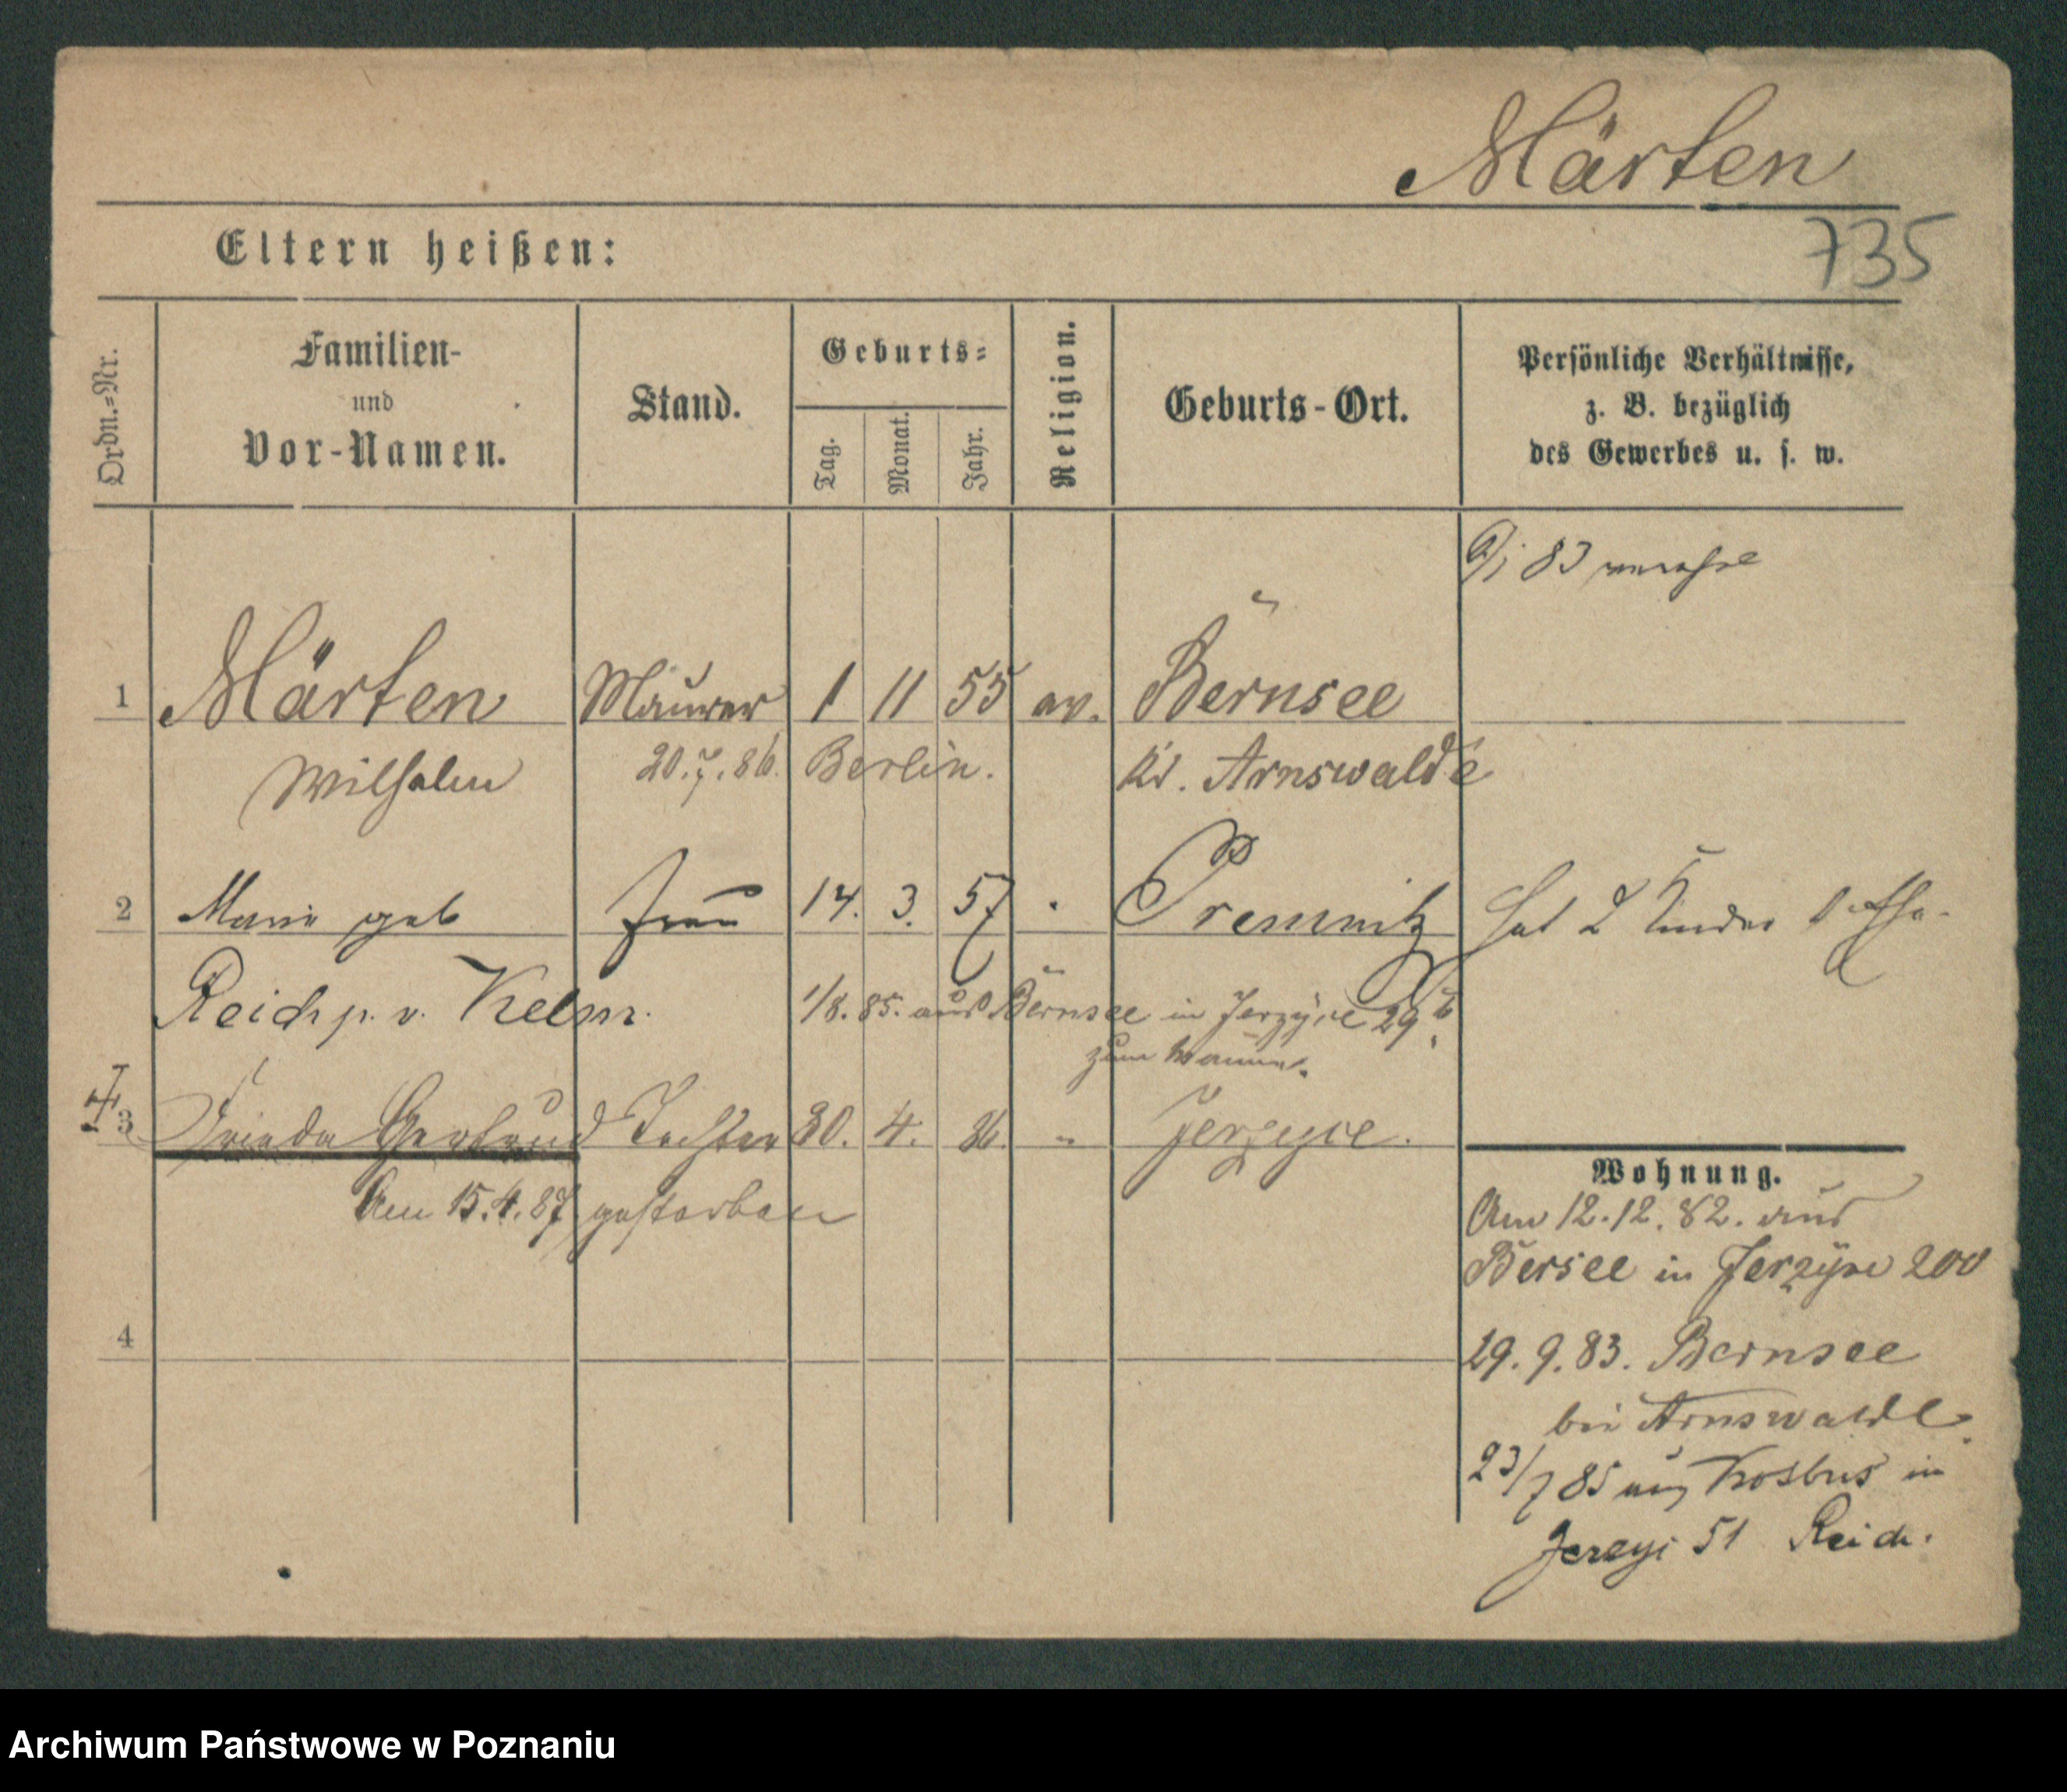 Märten
735
Eltern heißen:
Ordn.=Nr.
Familien-
und
Vor-Namen.
Stand.
Geburts=
Tag.
Monat.
Jahr.
Religion.
Geburts-Ort.
Persönliche Verhältnisse,
z. B. bezüglich
des Gewerbes u. s. w.
83
1 Märten Maurer 1 11 55 ev. Bernsee
Wilhelm 20.7.86. Berlin. Kr. Arnswalde
2 Marie geb Frau 14. 3. 57 Premnitz hat 2 Kinder
Reich p. v. Kelm. 1/8. 85. aus Bernsee in Jerzyce 29
zum Manne.
3 Frieda Gertrud Tochter 30. 4. 86. " Jerzyce.
Am 15.4.87 gestorben
Wohnung.
Am 12.12.82. aus
Bersee in Jerzyce 200
4
29.9.83. Bernsee
bei Arnswalde.
23/7 85 aus in
Jerzyi 51 Reich.
Archiwum Państwowe w Poznaniu